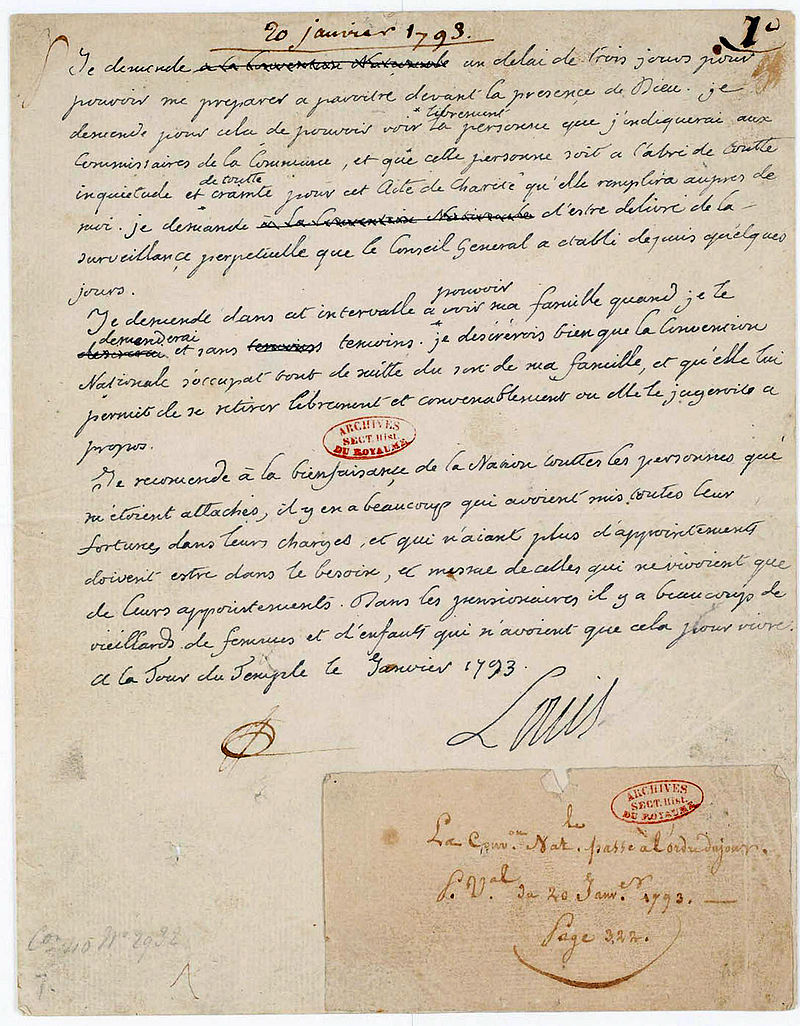 20 janvier 1793.
1°
Je demande a la Convention Nationale un delai de trois jours pour
pouvoir me preparer a paroitre devant la presence de Dieu. je
librement
demande pour cela de pouvoir voir la personne que j'indiquerai aux
Commissaires de la Commune, et que cette personne soit a l'abri de toutte
de toutte
inquietude et crainte pour cet Acte de Charité qu'elle remplira aupres de
moi. je demande à la Convention Nationale d'estre delivré de la
surveillance perpetuelle que le Conseil General a etabli depuis quelques
jours.
pouvoir
Je demende dans cet intervalle a voir ma famille quand je le
demanderai
et sans temoins temoins. je desirerois bien que la Convention
Nationale s'occupat tout de suitte du sort de ma famille, et qu'elle lui
permit de se retirer librement et convenablement ou elle le jugeroit a
propos.
ARCHIVES
SECT. Hist.
DU ROYAUME
Je recomende à la bienfaisance de la Nation touttes les personnes qui
m'étoient attachés, il y en a beaucoup qui avoient mis toutes leur
fortunes dans leurs charges, et qui n'aiant plus d'appointements
doivent estre dans le besoin, et mesme de celles qui ne vivoient que
de leurs appointements. Dans les pensionaires il y a beaucoup de
vieillards de femmes et d'enfants qui n'avoient que cela pour vivre.
A la Tour du Temple le Janvier 1793.
Louis
ARCHIVES
SECT. Hist.
DU ROYAUME
le
La Conv.on Nat. passe a l'ordre du jour.
P. V.al du 20 Janv.er 1793.
Page 322.
2932